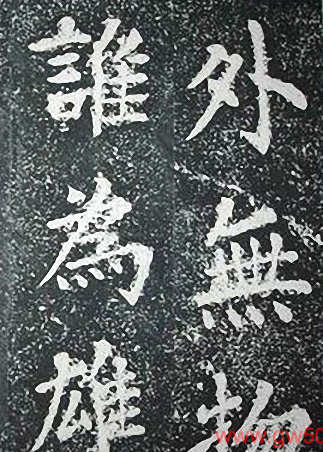 外無物
誰為雄
www.gw50